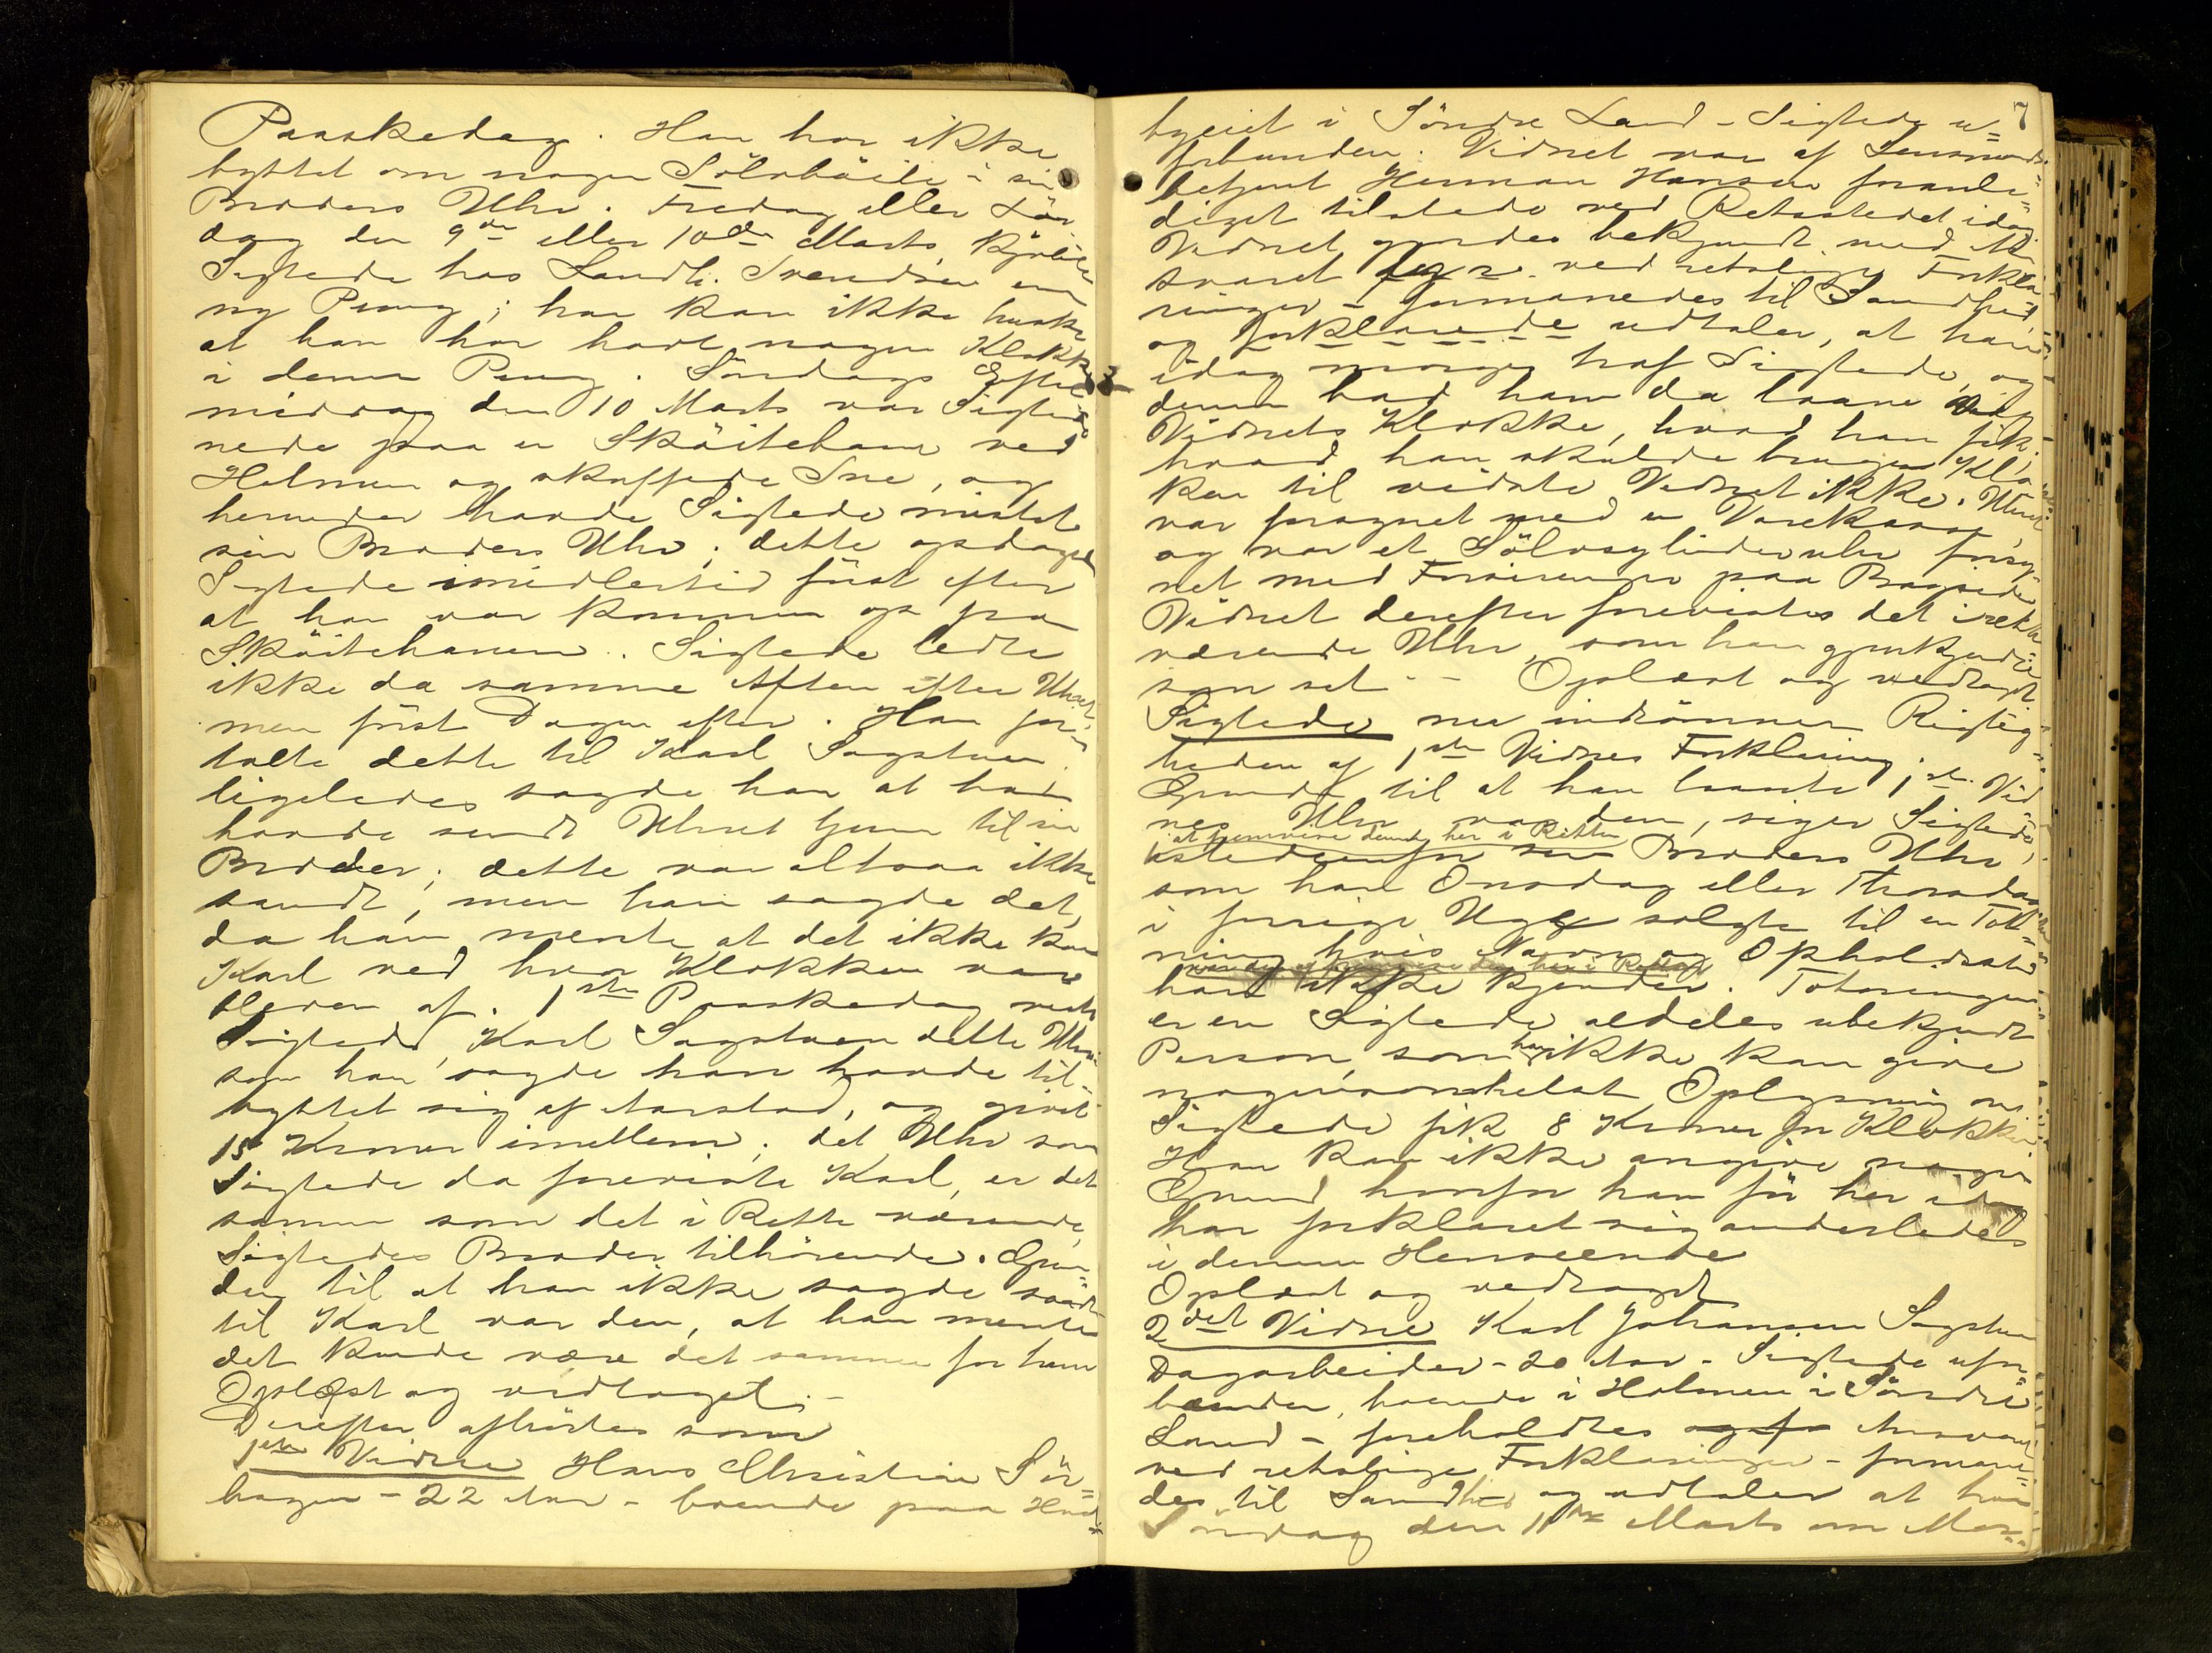 Paaskedag. Han har ikke
byttet om nogen Sölvböile i sin
Broders Uhr. Fredag eller Lör-
dag den 9de eller 10de Marts kjöbte
Sigtede hos Landh. Svendsen en
ny Pung; han kan ikke huske
at han har havt nogen Klokke
i denne Pung. Söndags Efter-
middag den 10 Marts var Sigtede
nede paa en Sköitebane ved
Holmen og skuffede Sne, og
herunder havde Sigtede mistet
sin Broders Uhr; dette opdaged
Sigtede imidlertid först efter
at han var kommen op fra
Sköitebanen. Sigtede ledte
ikke da samme Aften efter Uhret,
men först Dagen efter. Han for-
talte dette til Karl Sagstuen.
ligeledes sagde han at han
havde sendt Uhret hjem til sin
Broder; dette var altsaa ikke
sandt, men han sagde det,
da han mente at det ikke kom
Karl ved hvor Klokken var
bleven af. 1ste Paaskedag viste
Sigtede Karl Sagstuen dette Uhr
som han sagde han havde til-
byttet sig af Aarstad, og givet
15 Kroner imellem; det Uhr som
Sigtede da foreviste Karl, er det
samme som det i Rette værende,
Sigtedes Broder tilhörende. Grun-
den til at han ikke sagde sandt
til Karl var den, at han mente
det kunde være det samme for ham
Oplæst og vedtaget.-
Derefter afhörtes som
1ste Vidne Hans Christian Sör-
hagen - 22 Aar - boende paa Hud-
7
bygeiet i Söndre Land - Sigtede u-
forbunden. Vidnet var af Lensmands-
betjent Herman Hansen foranle-
diget tilstede ved Retsstedet idag.
Vidnet gjordes bekjendt med An-
svaret ved retslige Forkla-
ringer - formanedes til Sandhed,
og forklarende udtaler, at han
idag morges traf Sigtede, og
denne bad ham da laane
Vidnets Klokke, hvad han fik;
hvad han skulde bruge Klok-
ken til vidste Vidnet ikke. Uhret
var forsynet med en Varekasse,
og var et Sölvsylinderuhr forsy-
net med Forsiringer paa Bagsiden
Vidnet derefter forevistes det irette
værende Uhr, som han gjenkjendte
som sit - Oplæst og vedtaget
Sigtede nu indrömmer Rigtig-
heden af 1ste Vidnes Forklaring;
Grunden til at han laante 1ste Vid-
nes Uhr var den, siger Sigtede,
at fremvise denne her i Retten
istedenfor sin Broders Uhr,
som han Onsdag eller Thorsdag
i forrige Uge solgte til en Tot-
ning hvis Navn og Opholdssted
han ikke kjender. Totningen
er en Sigtede aldeles ubekjendt
Person, som han ikke kan give
nogensomhelst Oplysning om.
Sigtede fik 8 Kroner for Klokken
Han kan ikke angive nogen
Grund hvorfor han för her idag
har forklaret sig anderledes
i denne Henseende
Oplæst og vedtaget
2det Vidne Karl Johansen Sagstuen
Dagarbeider - 20 Aar - Sigtede ufor-
bunden, boende i Holmen i Söndre
Land - foreholdtes Ansvaret
ved retslige Forklaringer - formane-
des til Sandhed og udtaler at han
Söndag den 11te Marts om Mor-